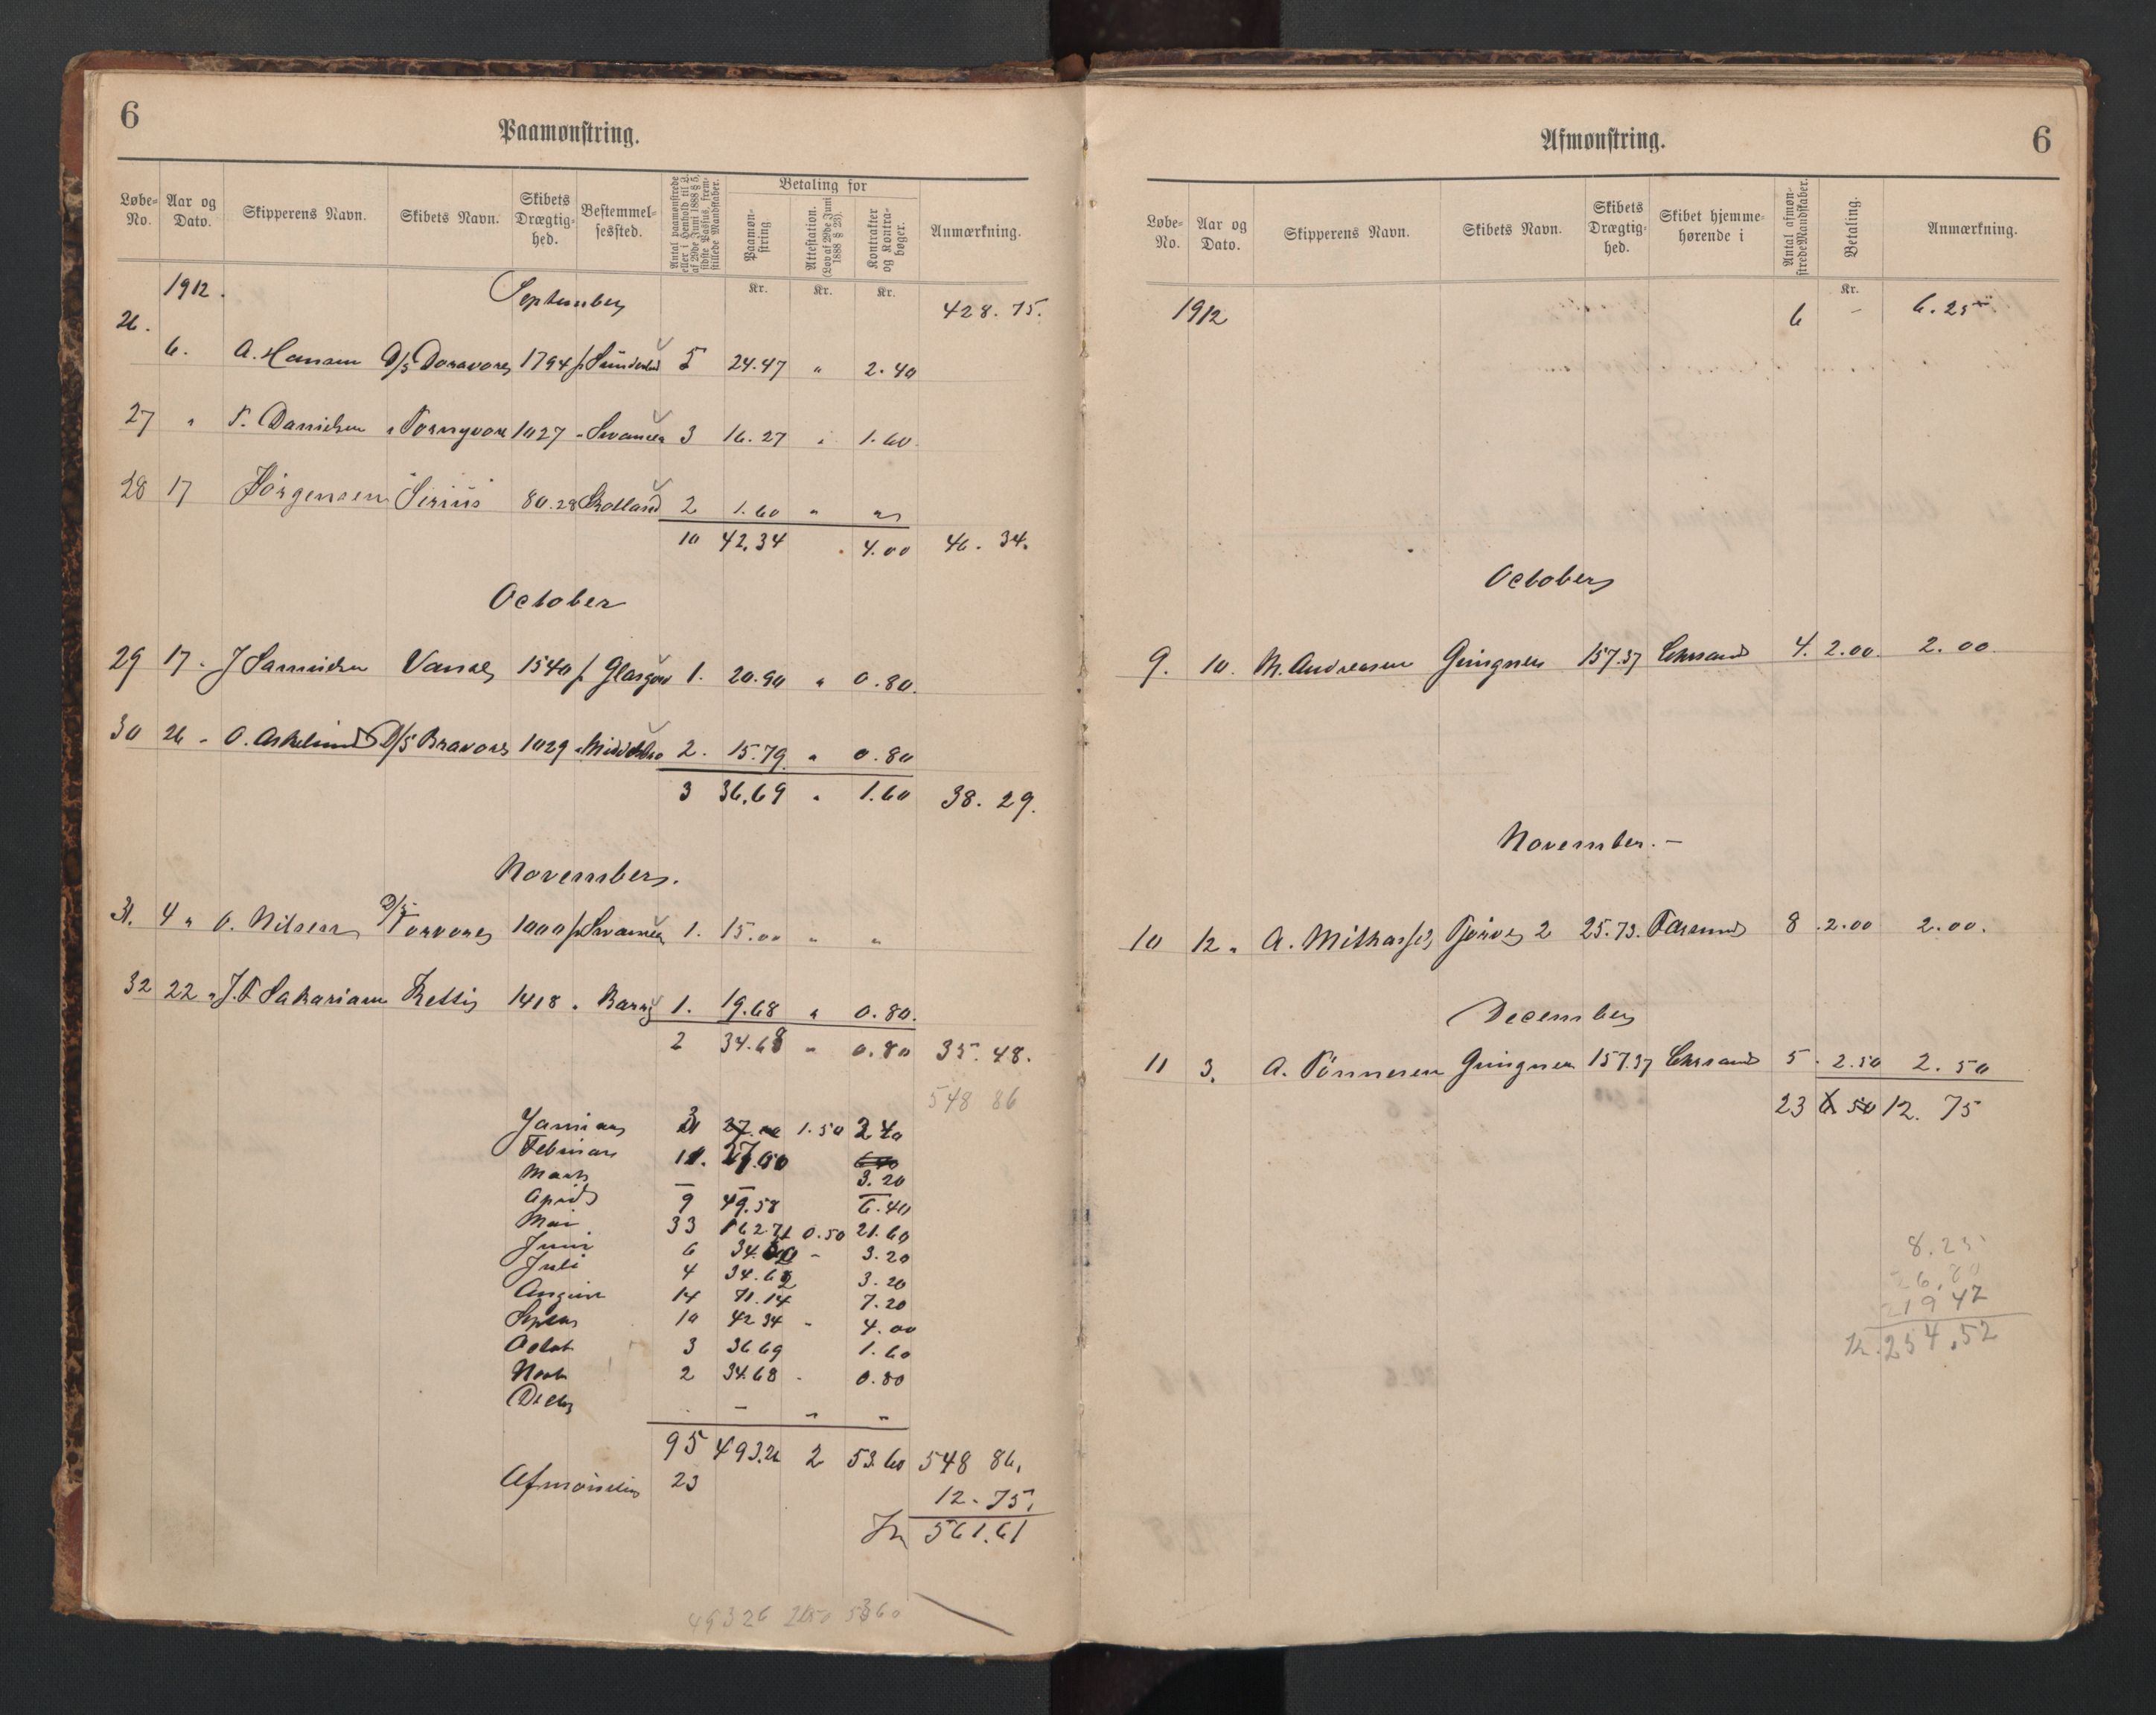 6
Paamønstring.
Løbe-No. Aar og Dato. Skipperens Navn. Skibets Navn. Skibets Drægtig-hed. Bestemmel-sessted. Antal paamønstrede eller i Henhold til L. af 29de Juni 1888 § 5, sidste Passus, frem-stillede Mandskaber. Betaling for Paamøn-string Attestation. (Lov af 29de Juni 1888 § 23). Kontrakter og Kontra-bøger. Anmærkning.
Kr. Kr. Kr.
1912. September 428.75.
26. 6. A. Hansen D/S Donavore 1794 f. Sunderland 5 24.47 " 2.40
27 " T. Danielsen " Tornyvore 1027 " Swansea 3 16.27 " 1.60
28 17 Jörgensen Sirius 80.28 Skotland 2 1.60 " "
10 42.34 4.00 46.34.
October
29 17. J Samuelsen Vanse 1540 f. Glasgow 1. 20.90 " 0.80.
30 26 " O. D/S Bravore 1029 " Middelsbro 2. 15.79 " 0.80
3 36.69 " 1.60 38.29.
November.
31. 4 " O. Nilsen D/S Torvore 1000 f. Swansea 1. 15.00 " "
32 22 " J. T Sakariasen 1418 " Barry 1. 19.68 " 0.80.
2 34.68 " 0.80 35.48.
548 86
Januar 1.50 2 40
Februar 3.20
Marts – –
April 9 49.58 6.40
Mai 33 162.71 0.50 21.60
Juni 6 3.20
Juli 4 34.62 3.20
August 14 71.14 7.20
Septbr 10 42 34 " 4.00
Octob 3 36 69 1.60
Novb 2 34.68 - 0.80
Decbr – " "
95 493.26 2 53.60 548 86.
Afmønstring 23 12.75.
Kr 561.61
493 26 53 60
Afmønstring.
6
Løbe-No. Aar og Dato. Skipperens Navn. Skibets Navn. Skibets Drægtig-hed. Skibet hjemme-hørende i Antal afmøn-strede Mandskaber. Betaling. Anmærkning.
Kr.
1912 6 – 6.25
October
9. 10. M. Andreasen Gungner 157.37 Chrsand 4. 2.00. 2.00.
November. –
10 12 " A. Tjörve 2 25.73. Farsund 8 2.00 2.00.
December
11 3. A. Tönnesen Gungner 157.37 Chrsand 5. 2.50 2.50
23 6 50 12.75
8.25
26.80
219 47
Kr. 254.52